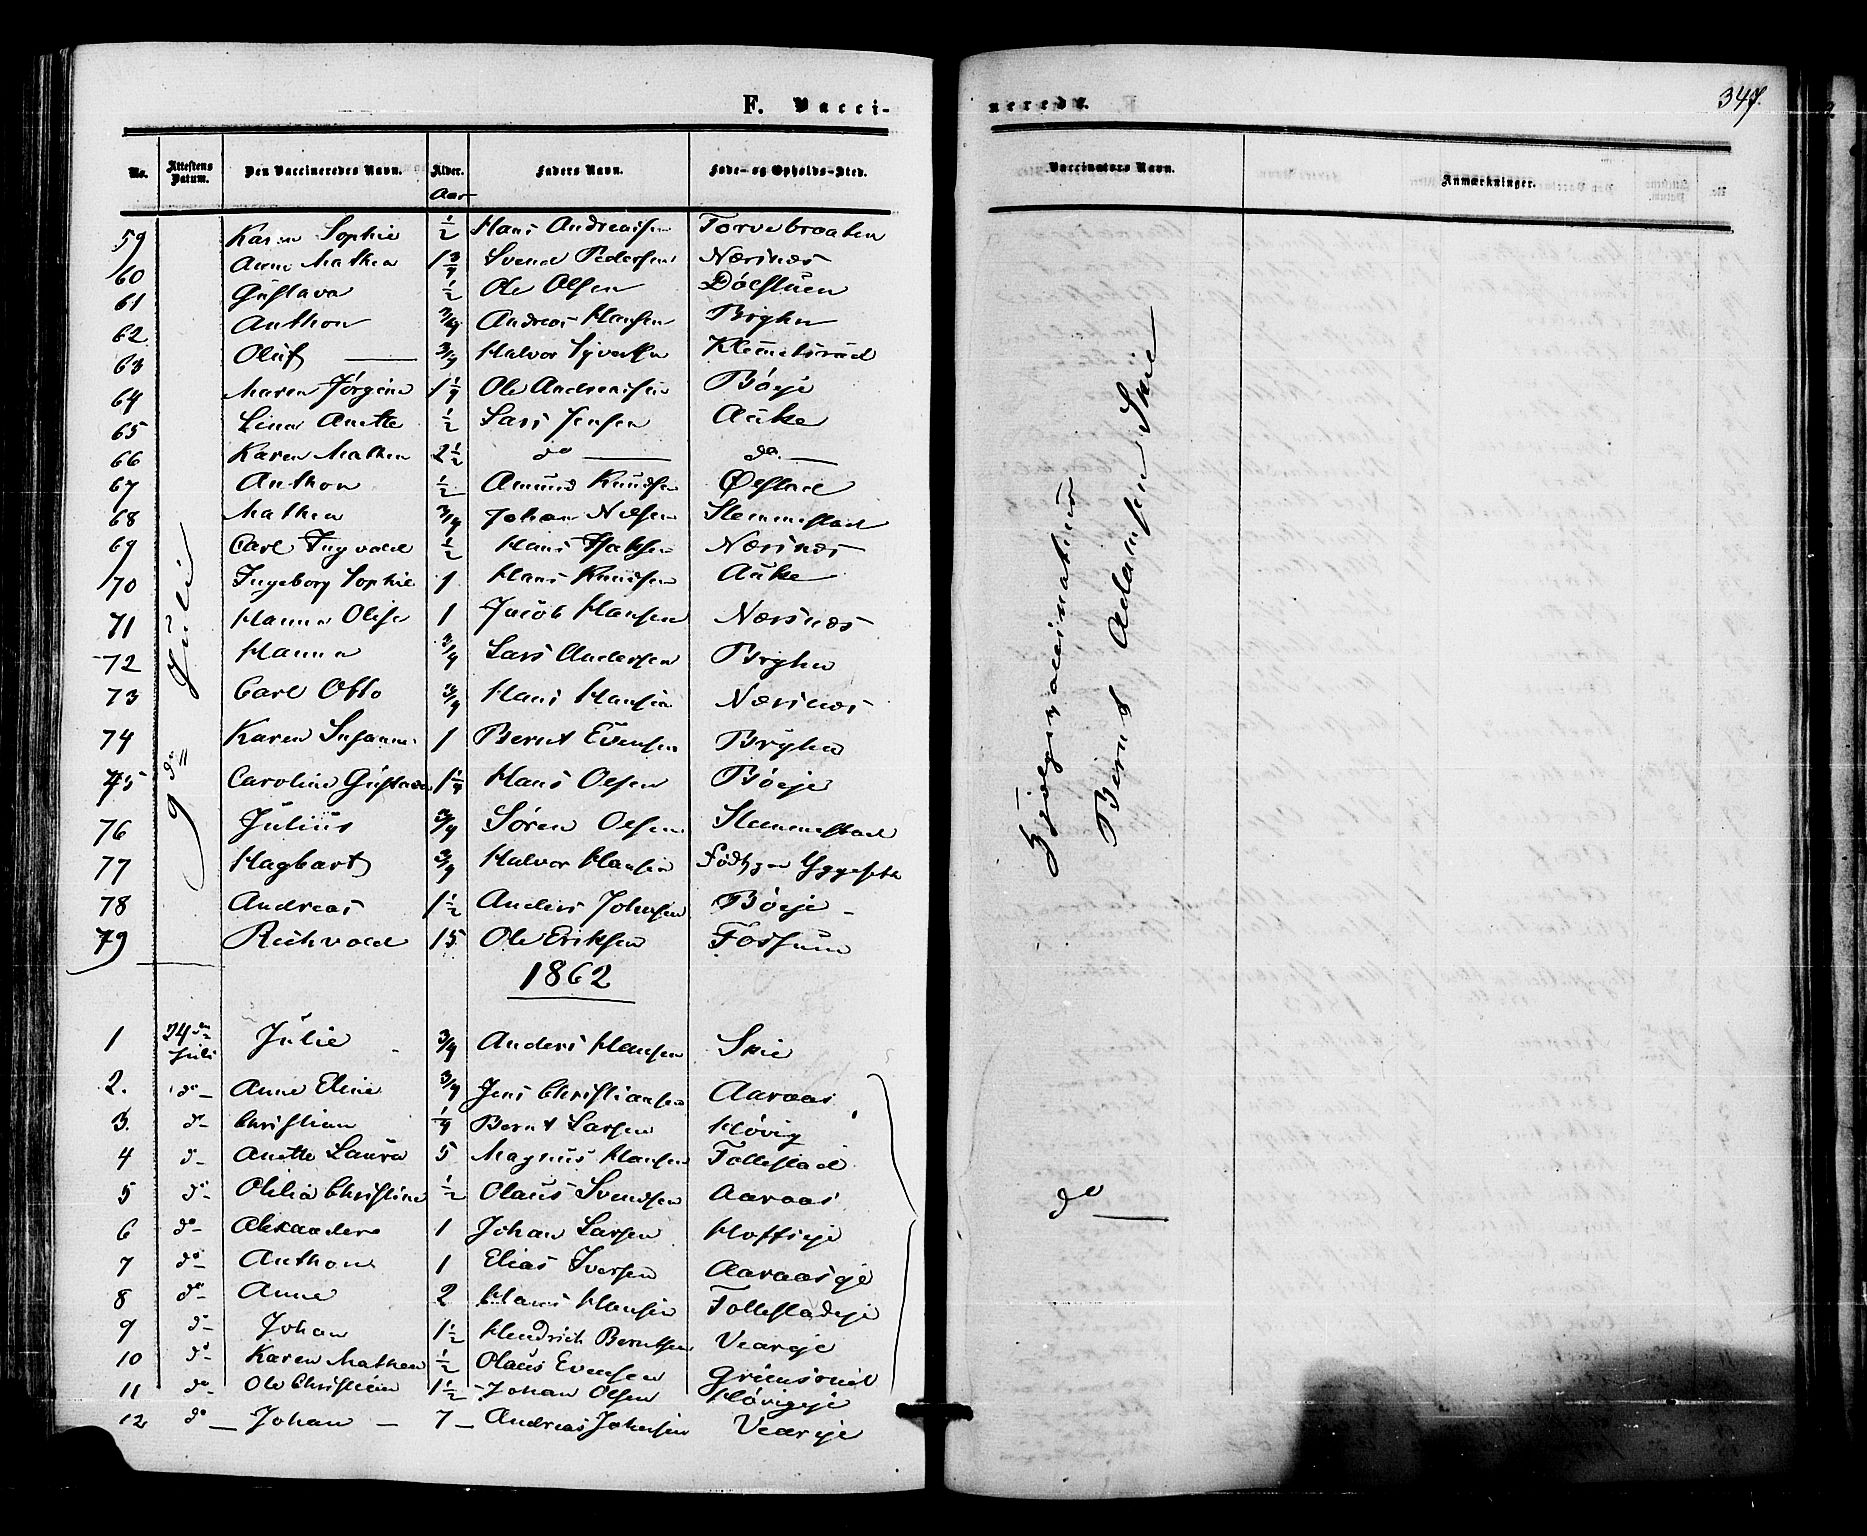 F. Vacci-
nerede.
347.
No.
Attestens Datum.
Den Vaccineredes Navn.
Alder.
Faders Navn.
Føde- og Opholds-Sted.
Vaccinators Navn.
Anmærkninger.
Aar
59 Karen Sophie 1/2 Hans Andreassen Torvebraaten
60 Anne Mathea 1 3/4 Svend Pedersen Næsnæs
61 Gustava 1/2 Ole Olsen Døelstuen
62 Anthon 3/4 Andreas Hansen Bryhn
63 Oluf — 3/4 Halvor Syversen Klemetsrud
64 Maren Jørgine 1 1/4 Ole Andreassen Bøeje
65 Lina Anette 1/2 Lars Jensen Auke
66 Karen Mathea 2 1/2 do — do. —
67 Anthon 1/2 Amund Knudsen Øestad
68 Mathea 3/4 Johan Nilsen Slemmestad
69 Carl Ingvald 1/2 Hans Isaksen Næsnæs
70 Ingeborg Sophie 1 Hans Knudsen Auke
71 Hanna Olise 1 Jacob Hansen Næsnæs
72 Hanna 3/4 Lars Andersen Bryhn
73 Carl Otto 3/4 Hans Hansen Næsnæs
74 Karen Susanne 1 Bernt Evensen Bryhn
75 Caroline Gustava 1 1/4 Hans Olsen Bøeje
76 Julius 3/4 Søren Olsen Slemmestad
77 Hagbart 3/4 Halvor Hansen Yggeseth
78 Andreas 1 1/2 Anders Johnsen Bøeje -
79 Richvald 15 Ole Eriksen Fossum
9de Juli
Hjælpevaccinateur
Bernt Adamsen Skie
1862
1 24de Juli Julie 3/4 Anders Hansen Skie
2. do Anne Eline 3/4 Jens Christiansen Aaraas
3. do Christian 1/4 Bernt Larsen Høvig
4 do Anette Laura 5 Magnus Hansen Follestad
5 do Othilia Christine 1/2 Olaus Svendsen Aaraas
6 do Alexander 1 Johan Larsen Hoftseje
7 do Anthon 1 Elias Iversen Aaraaseje
8 do Anne 2 Hans Hansen Follestadeje
9 do Johan 1 1/2 Hendrich Berntsen Veareje
10 do Karen Mathea 1/2 Olaus Evensen Grimsrud
11 do Ole Christian 1 1/2 Johan Olsen Høvigeje
12 do — Johan — 7 — Andreas Johnsen Veareje
do —